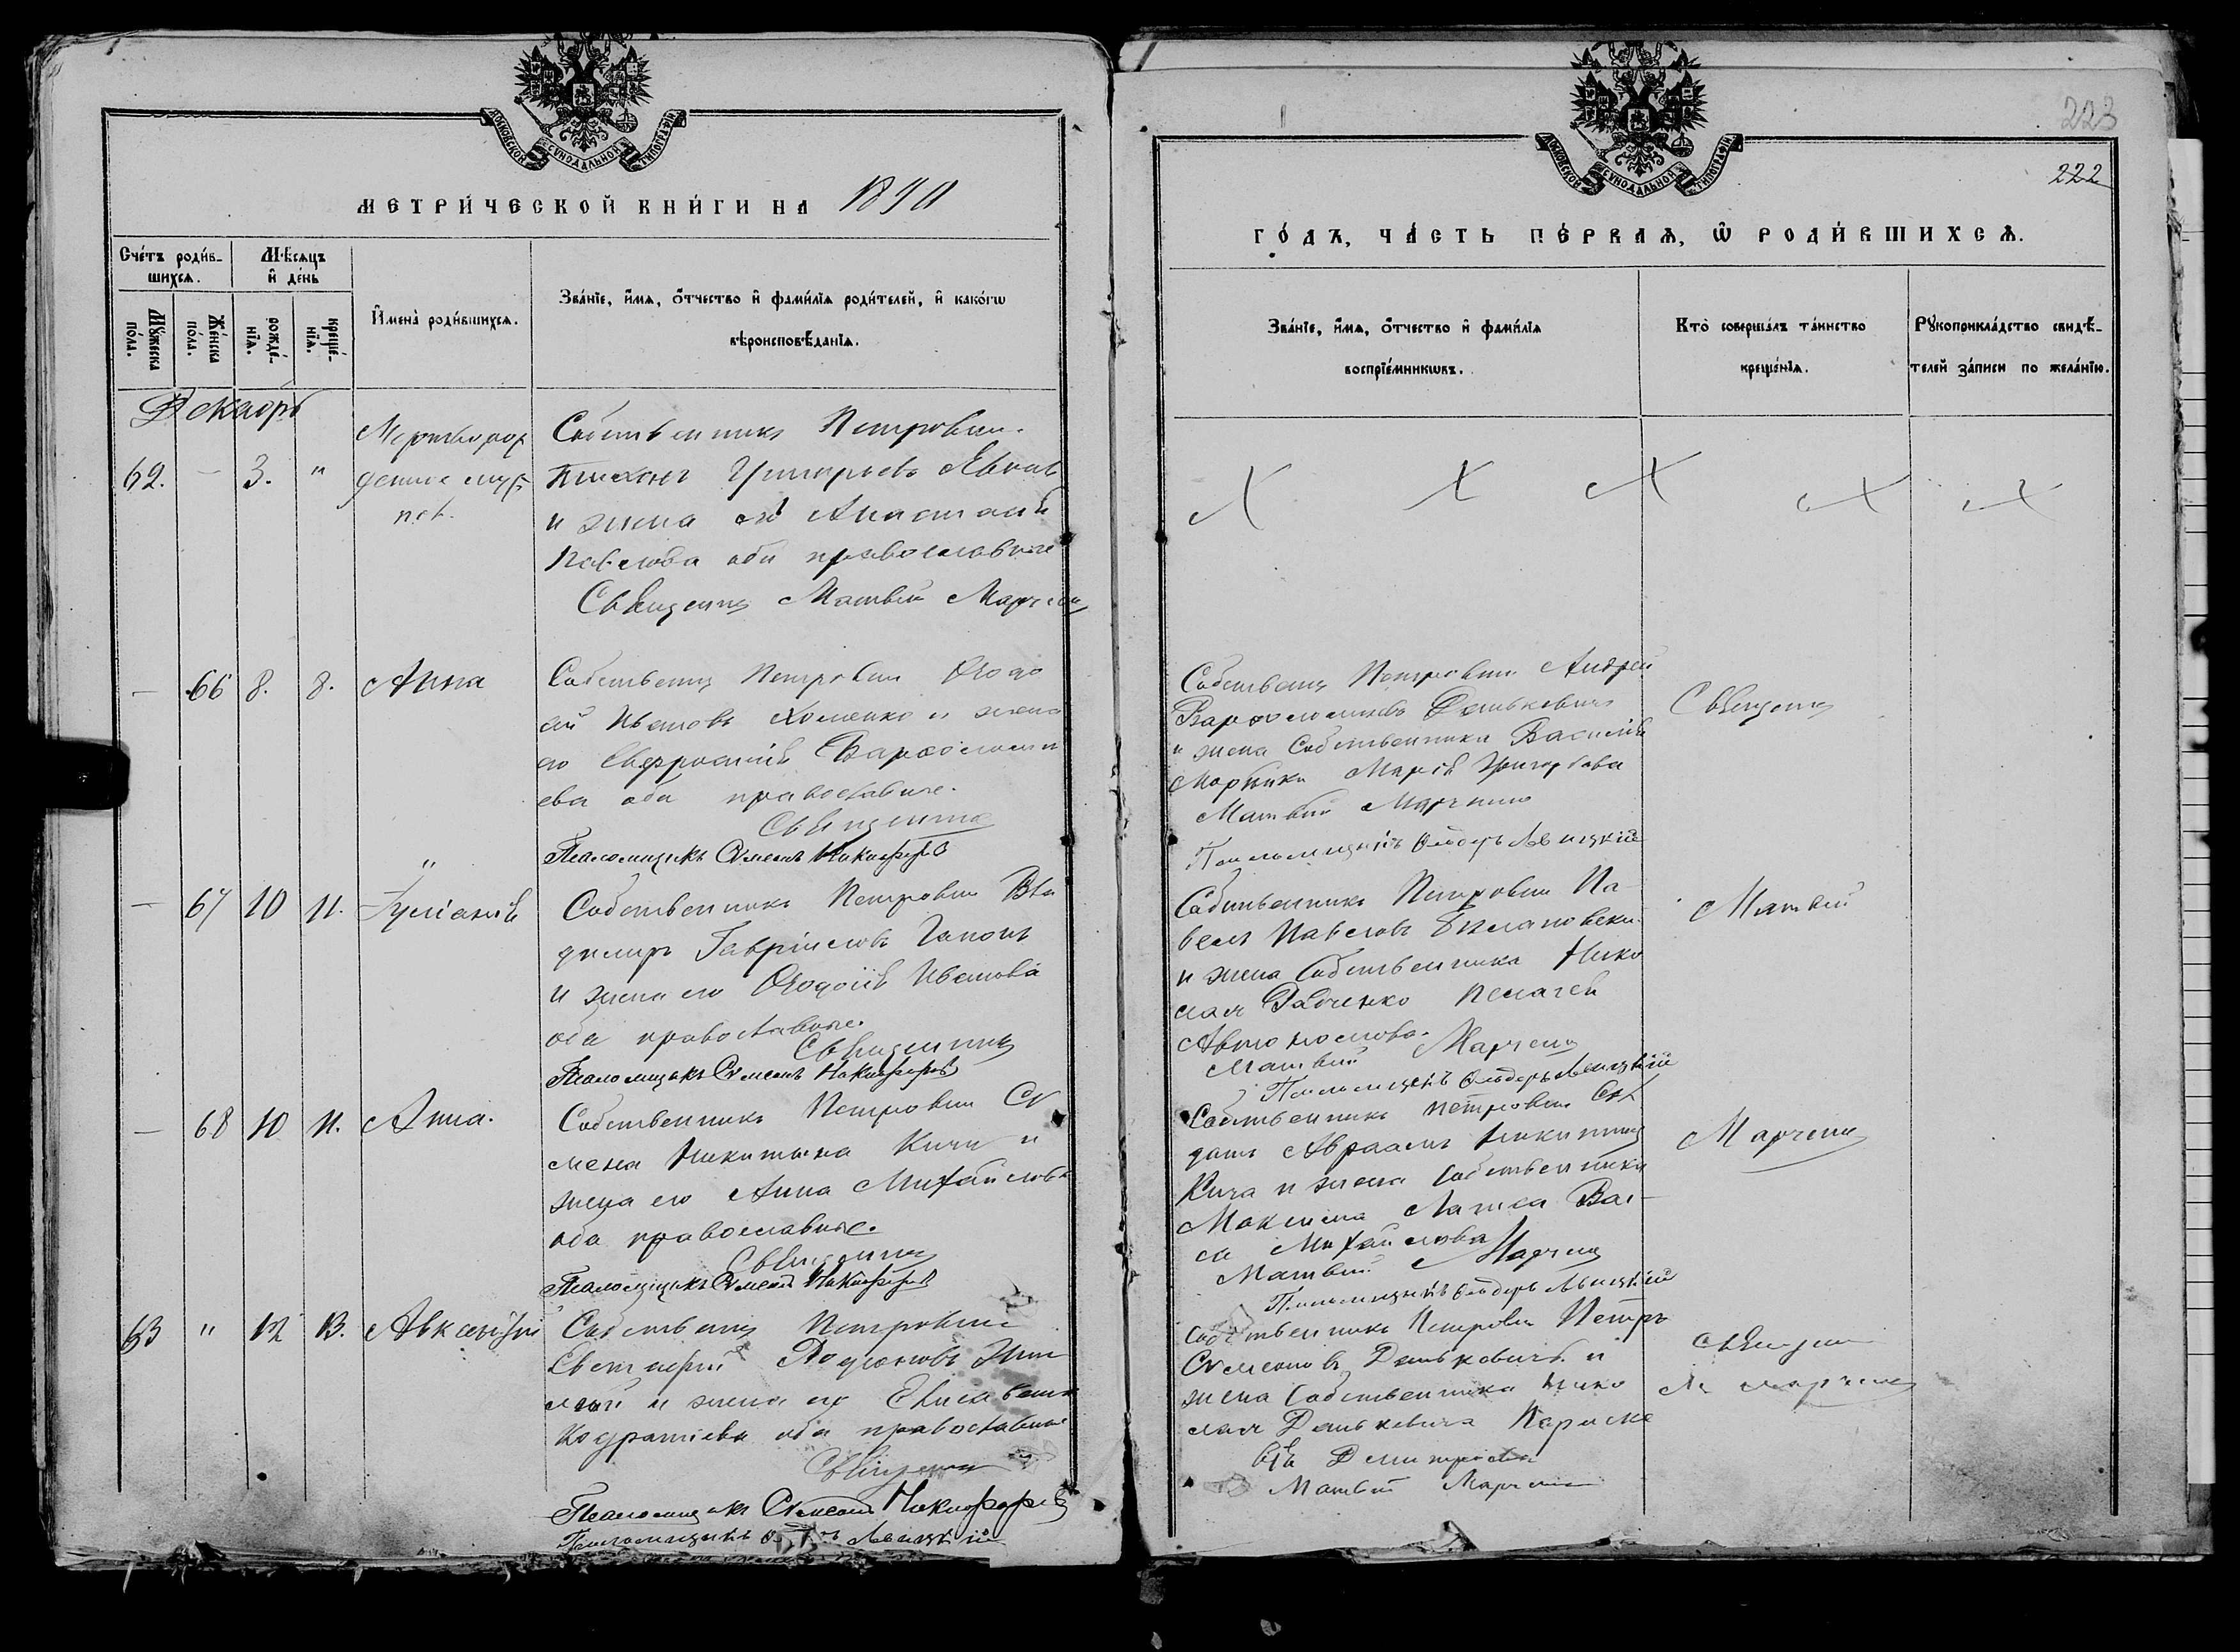 МОСКОВСКОЙ СѴНОДАЛЬНОЙ ТѴПОГРАФІИ
МЕТРИ́ЧЕСКОЙ КНИ́ГИ НА 1890
Сче́тъ роди́в-
шихсѧ.
Мѣ́сѧцъ
и҆ де́нь
Мꙋ́жеска по́ла.
Же́нска по́ла.
рожде́-
нїѧ.
креще́-
нїѧ.
И҆мена̀ роди́вшихсѧ.
Зва́нїе, и҆́мѧ, ѻ҆́тчество и҆ фами́лїѧ роди́телей, и҆ како́гѡ
вѣроисповѣ́данїѧ.
Декабрь
62. — 3. " Мертворож
денное муж
пол.
Собственникъ Петровки
Тихонъ Григорьевъ
и жена его Анастасія
Павлова оба православные
Священникъ Матвей Марченко
— 66 8. 8. Анна
Собственникъ Петровки Ѳеодо
сій Ивановъ Хоменко и жена
его Евфросинія Варфоломее
ева оба православные.
Священникъ
Псаломщикъ Симеонъ Никифоровъ
"
— 67 10 11. Іуліанія
Собственникъ Петровки Вла
димиръ Гавріиловъ Гапонъ
и жена его Ѳеодосія Иванова
оба православные.
Священникъ
Псаломщикъ Симеонъ Никифоровъ
— 68 10 11. Анна.
Собственникъ Петровки Си
меонъ Никитинъ Кича и
жена его Анна Михайлова
оба православные.
Священникъ
Псаломщикъ Симеонъ Никифоровъ
63 " 12 13. Авксентій
Собственникъ Петровки
Евстафій Родіоновъ
и жена его Елисавета
Кодратіева оба православные
Священникъ
Псаломщикъ Симеонъ Никифоровъ
Псаломщикъ Левицкій
МОСКОВСКОЙ СѴНОДАЛЬНОЙ ТѴПОГРАФІИ
223
222
ГО́ДЪ, ЧА́СТЬ ПЕ́РВАѦ, Ѡ҆ РОДИ́ВШИХСѦ.
Зва́нїе, и҆́мѧ, ѻ҆́тчество и҆ фами́лїѧ
воспрїе́мникѡвъ.
Кто̀ соверша́лъ та́инство
креще́нїѧ.
Рꙋкоприкла́дство свидѣ́-
телей за́писи по жела́нїю.
Х Х Х Х Х
Собственникъ Петровки Андрей
Варфоломеевъ Данькевичъ
и жена Собственника Василія
Марія Григорьева
Матвей Марченко
Псаломщикъ Ѳеодоръ Левицкій
Священникъ
Собственникъ Петровки Па-
велъ Павловъ
и жена Собственника Нико
лая Радченко Пелагея
Автономова.
Матвей Марченко
Псаломщикъ Ѳеодоръ Левицкій
Матвей
Собственникъ Петровки Сол
датъ Авраамъ Никитинъ
Кича и жена Собственника
Максима Васи
са Михайлова
Матвей Марченко
Псаломщикъ Ѳеодоръ Левицкій
Марченко
Собственникъ Петровки Петръ
Симеоновъ Данькевичъ и
жена Собственника Нико
лая Данькевича Параске
вія Димитріева
Матвей Марченко
Священникъ
М. Марченко